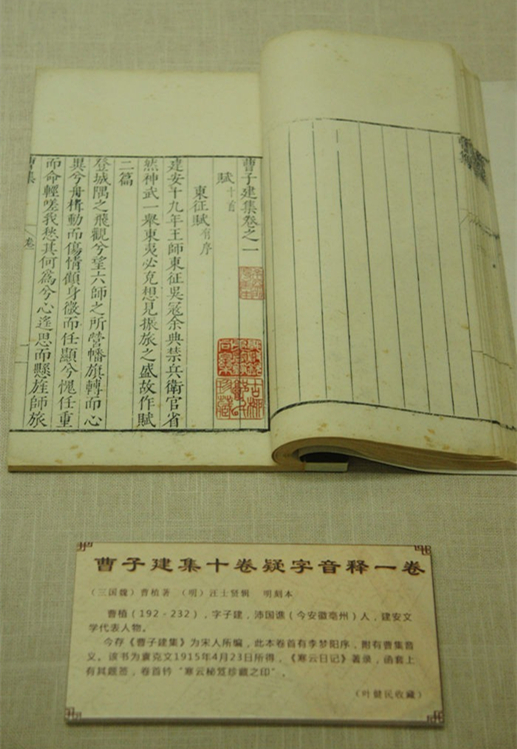 曹子建集卷之一
賦十首
東征賦有序
建安十九年王師東征吳寇余典禁兵衛官省
然神武一舉東夷必克想見振旅之盛故作賦
二篇
登城隅之飛觀兮望六師之所營幡旗轉而心
異兮舟楫動而傷情顧身微而任顯兮愧任重
而命輕嗟我愁其何爲兮心遙思而懸旌師旅
曹集 卷
曹子建集十卷疑字音释一卷
（三国魏）曹植著 （明）汪士贤辑 明刻本
曹植（192－232），字子建，沛国谯（今安徽亳州）人，建安文
学代表人物。
今存《曹子建集》为宋人所编，此本卷首有李梦阳序，附有曹集音
义。该书为袁克文1915年4月23日所得，《寒云日记》著录，函套上
有其题签，卷首钤“寒云秘笈珍藏之印”。
（叶 民收藏）